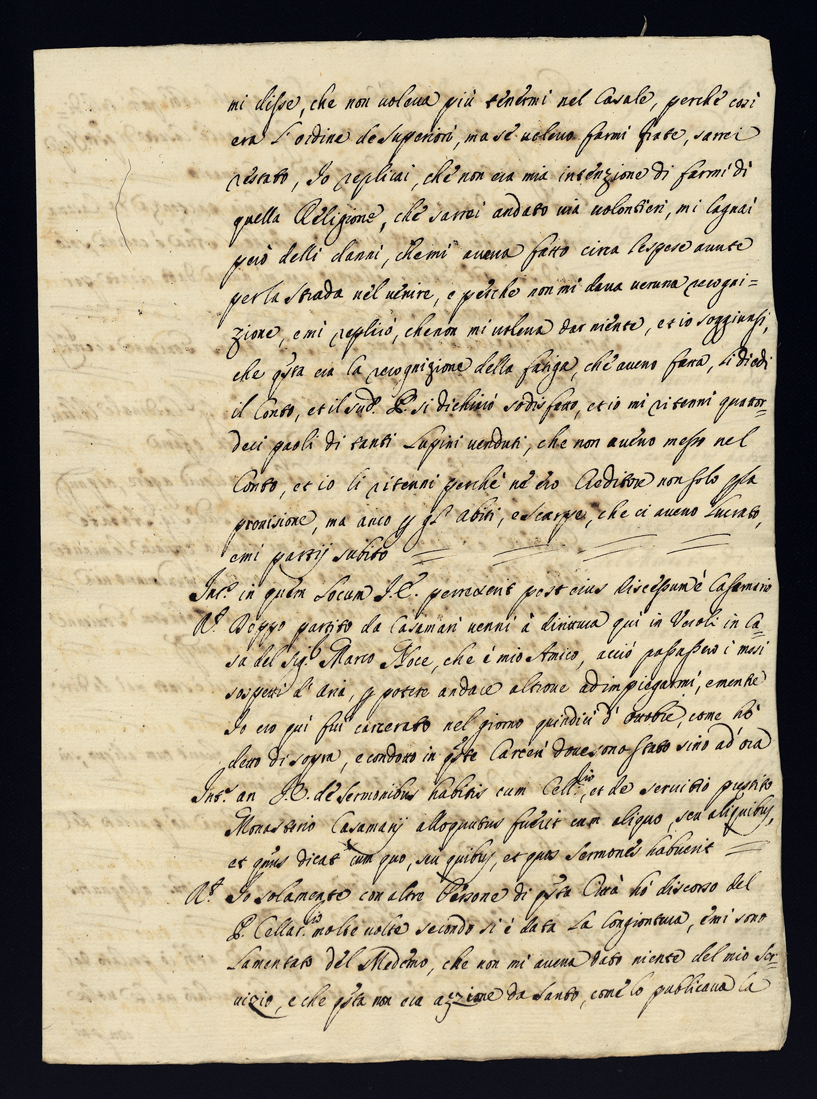 mi disse, che non voleva più tenermi nel Casale, perche così
era l'ordine de Superiori, ma se volevo farmi frate, sarei
restato, Io replicai, che non era mia intenzione di farmi di
quella Religione, che sarrei andato via volontieri, mi lagnai
però delli danni, che mi aveva fatto circa le spese avute
per la strada nel venire, e perche non mi dava veruna recogni=
zione, e mi replicò, che non mi voleva dar niente, et io soggiunsi,
che qsta era la recognizione della fatiga, che avevo fatta, li diedi
il Conto, et il sud.º P. si dichiarò sodisfatto, et io mi ritenni quattor=
deci paoli di tanti Lupini venduti, che non avevo messo nel
Conto, et io li ritenni perchè ne ero Creditore non solo p la
provisione, ma anco p gl'Abiti, e Scarpe, che ci avevo Lucrato,
e mi partij subito
Int.s in quem Locum I. C. perrexerit post eius discessum è Casamario
R.t Doppo partito da Casamari venni à dirittura qui in Veroli in Ca=
sa del Sig.r Marco Noce, che è mio Amico, acciò passassero i mesi
sospetti d'aria, p potere andare altrove ad impiegarmi, e mentre
Io ero qui fui carcerato nel giorno quindici d'ottobre, come hò
detto di sopra, e condotto in qste Carceri dove sono stato sino ad'ora
Int.s an I. C. de sermonibus habitis cum Cell.rio, et de servitio prestito
Monasterio Casamarij alloquutus fuerit cum aliquo, seu aliquibus,
et q.tenus dicat cum quo, seu quibus, et quos sermones habuerit
R.t Io solamente con altre Persone di qsta Città hò discorso del
P. Cellar.io molte volte secondo si è data la Congiontura, e mi sono
Lamentato del Medemo, che non mi aveva dato niente del mio Ser=
vizio, e che qsta non era azzione da Santo, come lo publicava la